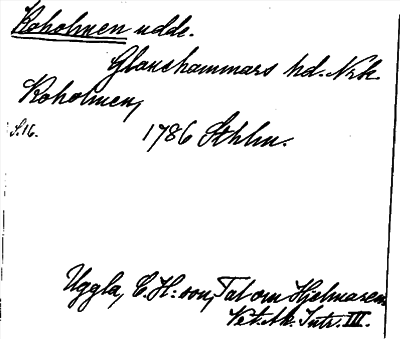 Koholmen udde.
Glanshammars hd. Nrk.
Koholmen,
S.16. 1786 Sthlm.
Uggla, C. H:son, Tal om Hjelmaren
Vet. Ak. Intr. III.